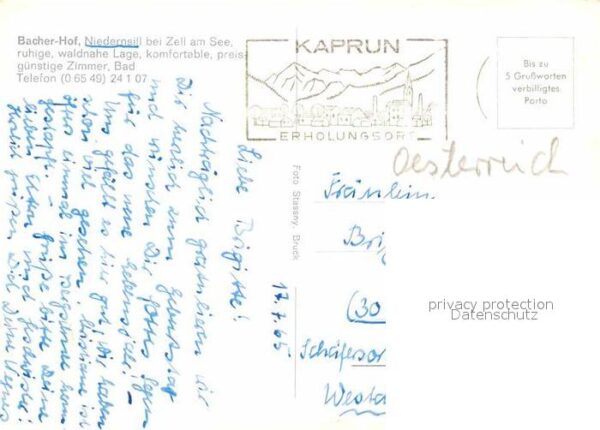 Bacher-Hof, Niedernsill bei Zell am See,
ruhige, waldnahe Lage, komfortable, preis-
günstige Zimmer, Bad
Telefon (0 65 49) 24 1 07
KAPRUN
ERHOLUNGSORT
Bis zu
5 Grußworten
verbilligtes
Porto
Oesterreich
Foto Stassny, Bruck
17.7.65
Liebe Brigitte!
Nachträglich gratulieren wir
Dir herzlich zum Geburtstag
und wünschen Dir Gottes Segen
für das neue Lebensjahr! –
Uns gefällt es hier gut. Wir haben
schon viel gesehen. ist
öfters einmal im
– Grüße bitte Deine
lieben Eltern und Geschwister!
Herzlich grüßen Dich Deine
Fräulein
Bri
(30
Schäferson
Westa
privacy protection
Datenschutz